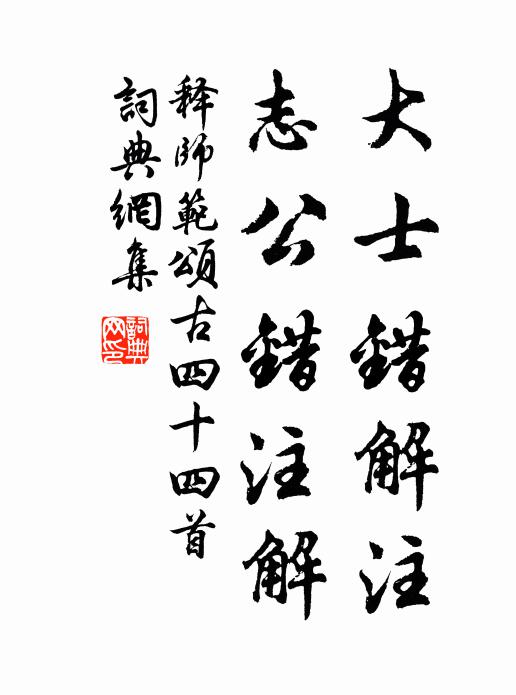 大士錯解注
志公錯注解
释師範頌古四十四首
詞典網集
詞典网印